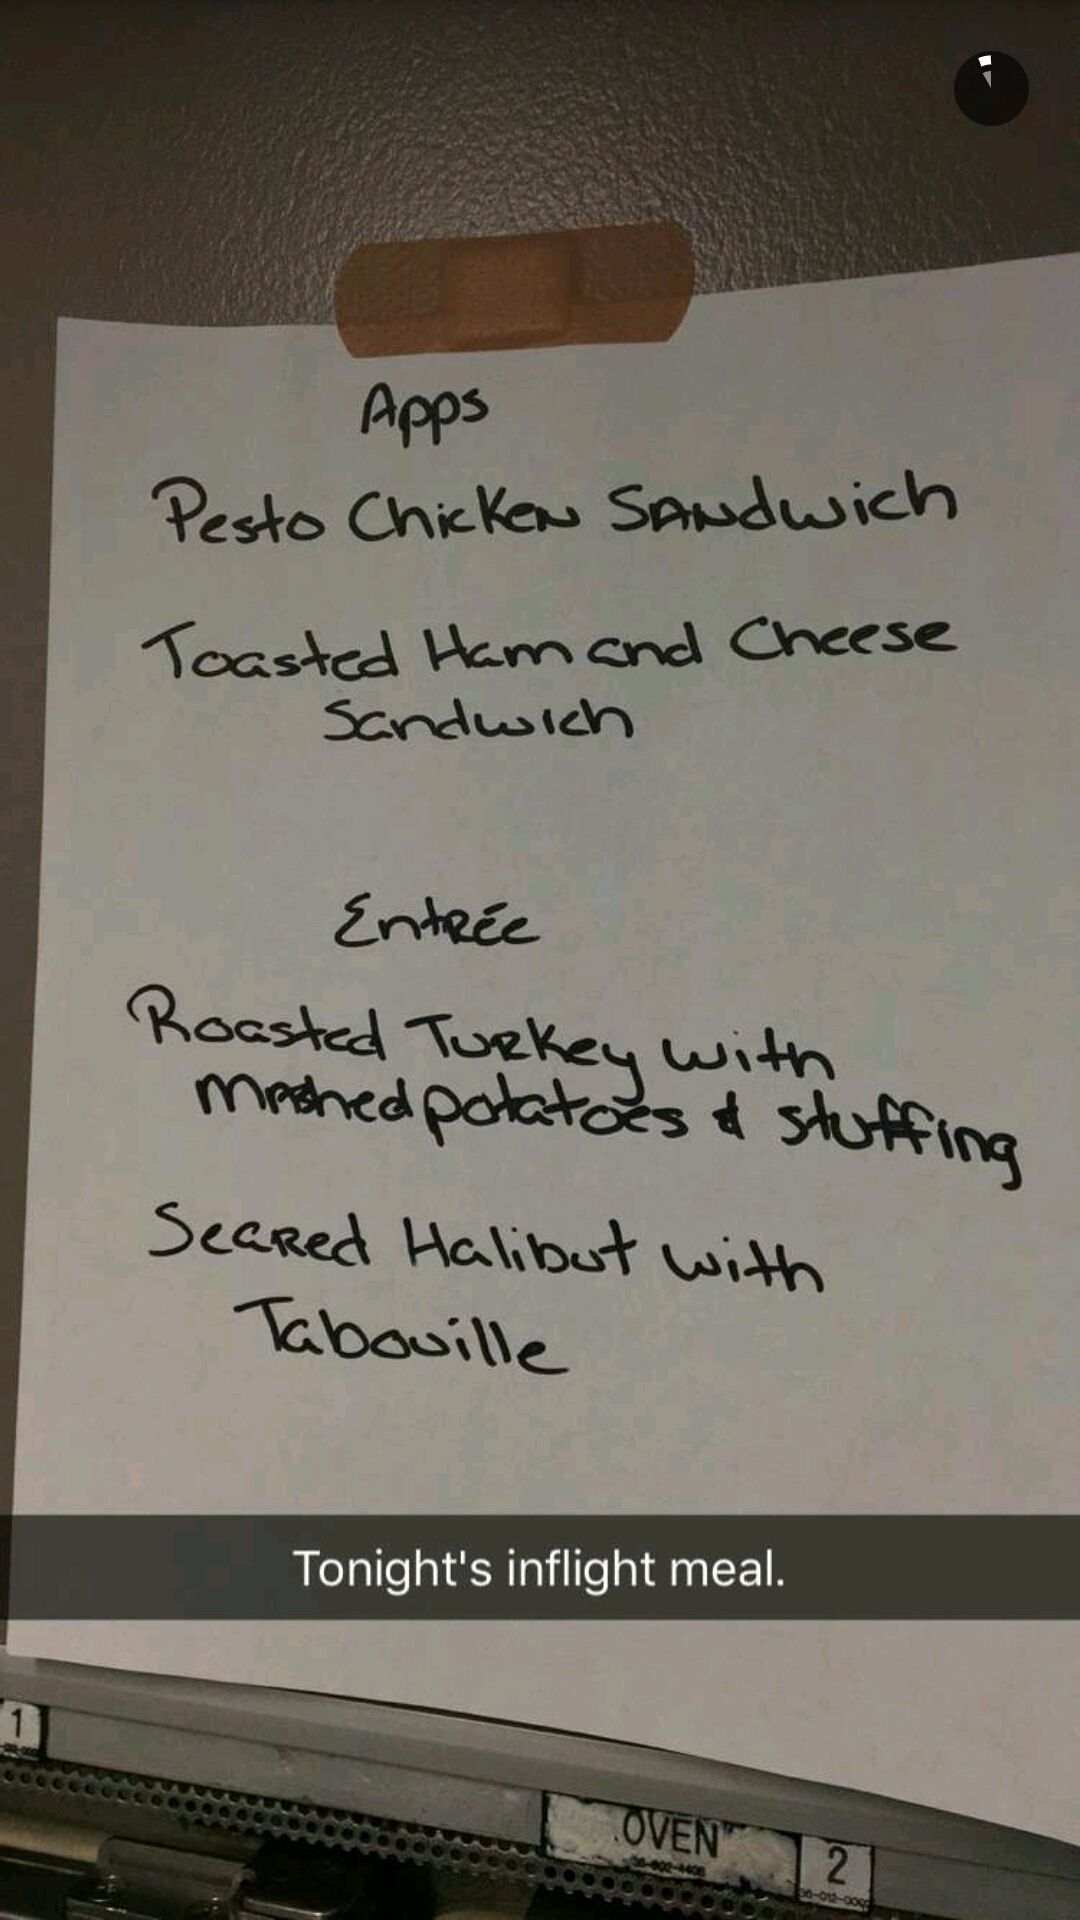 Apps
Pesto Chicken Sandwich
Toasted Ham and Cheese
Sandwich
Entrée
Roasted Turkey with
mashed potatoes & stuffing
Seared Halibut with
Tabouille
Tonight's inflight meal.
1
OVEN
2